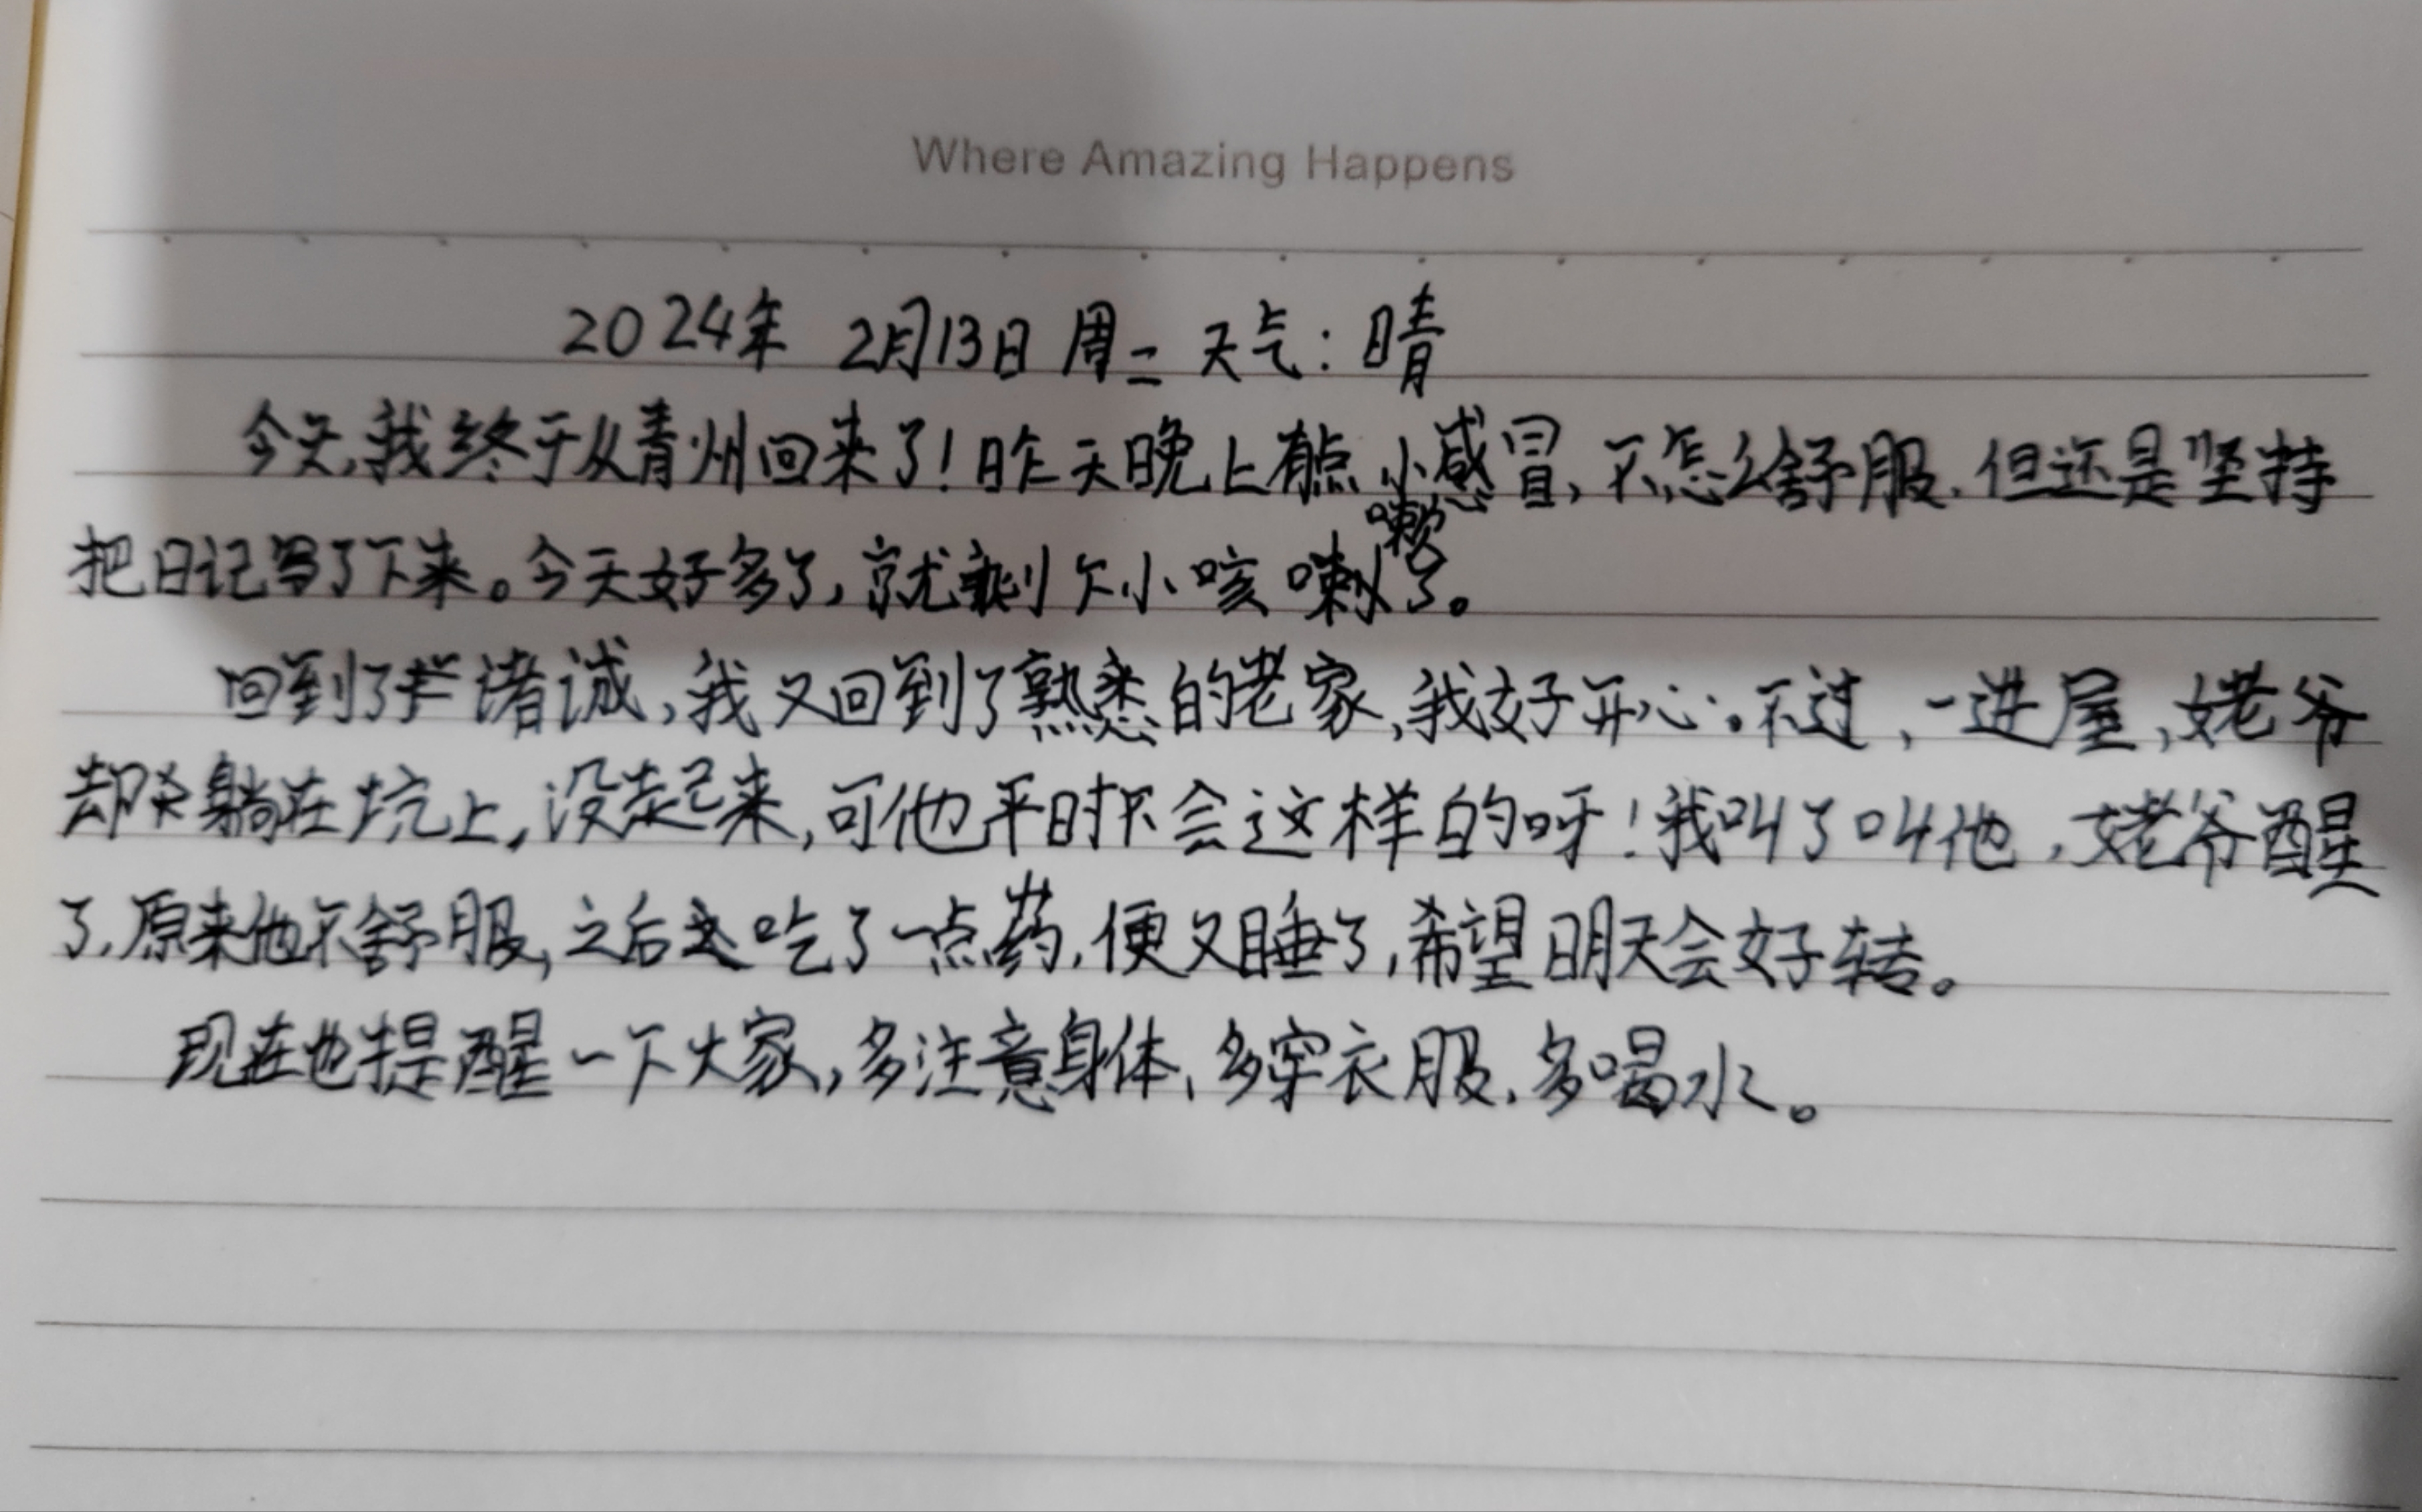 Where Amazing Happens
2024年 2月13日 周二 天气：晴
今天,我终于从青州回来了！昨天晚上有点小感冒,不怎么舒服,但还是坚持
把日记写了下来。今天好多了,就剩下小咳嗽了。
回到了诸诚,我又回到了熟悉的老家,我好开心。不过,一进屋,姥爷
却躺在坑上,没起来,可他平时不会这样的呀！我叫了叫他,姥爷醒
了,原来他不舒服,之后吃了一点药,便又睡了,希望明天会好转。
现在也提醒一下大家,多注意身体,多穿衣服,多喝水。